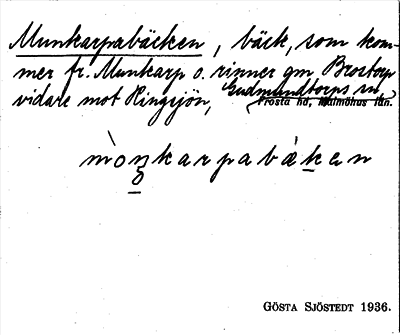 Munkarpabäcken, bäck, som kom-
mer fr. Munkarp o. rinner gm Brostorp
vidare mot Ringsjön, Gudmundtorps sn,
Frosta hd, Malmöhus län.
mòŋkarpabàken
GÖSTA SJÖSTEDT 1936.